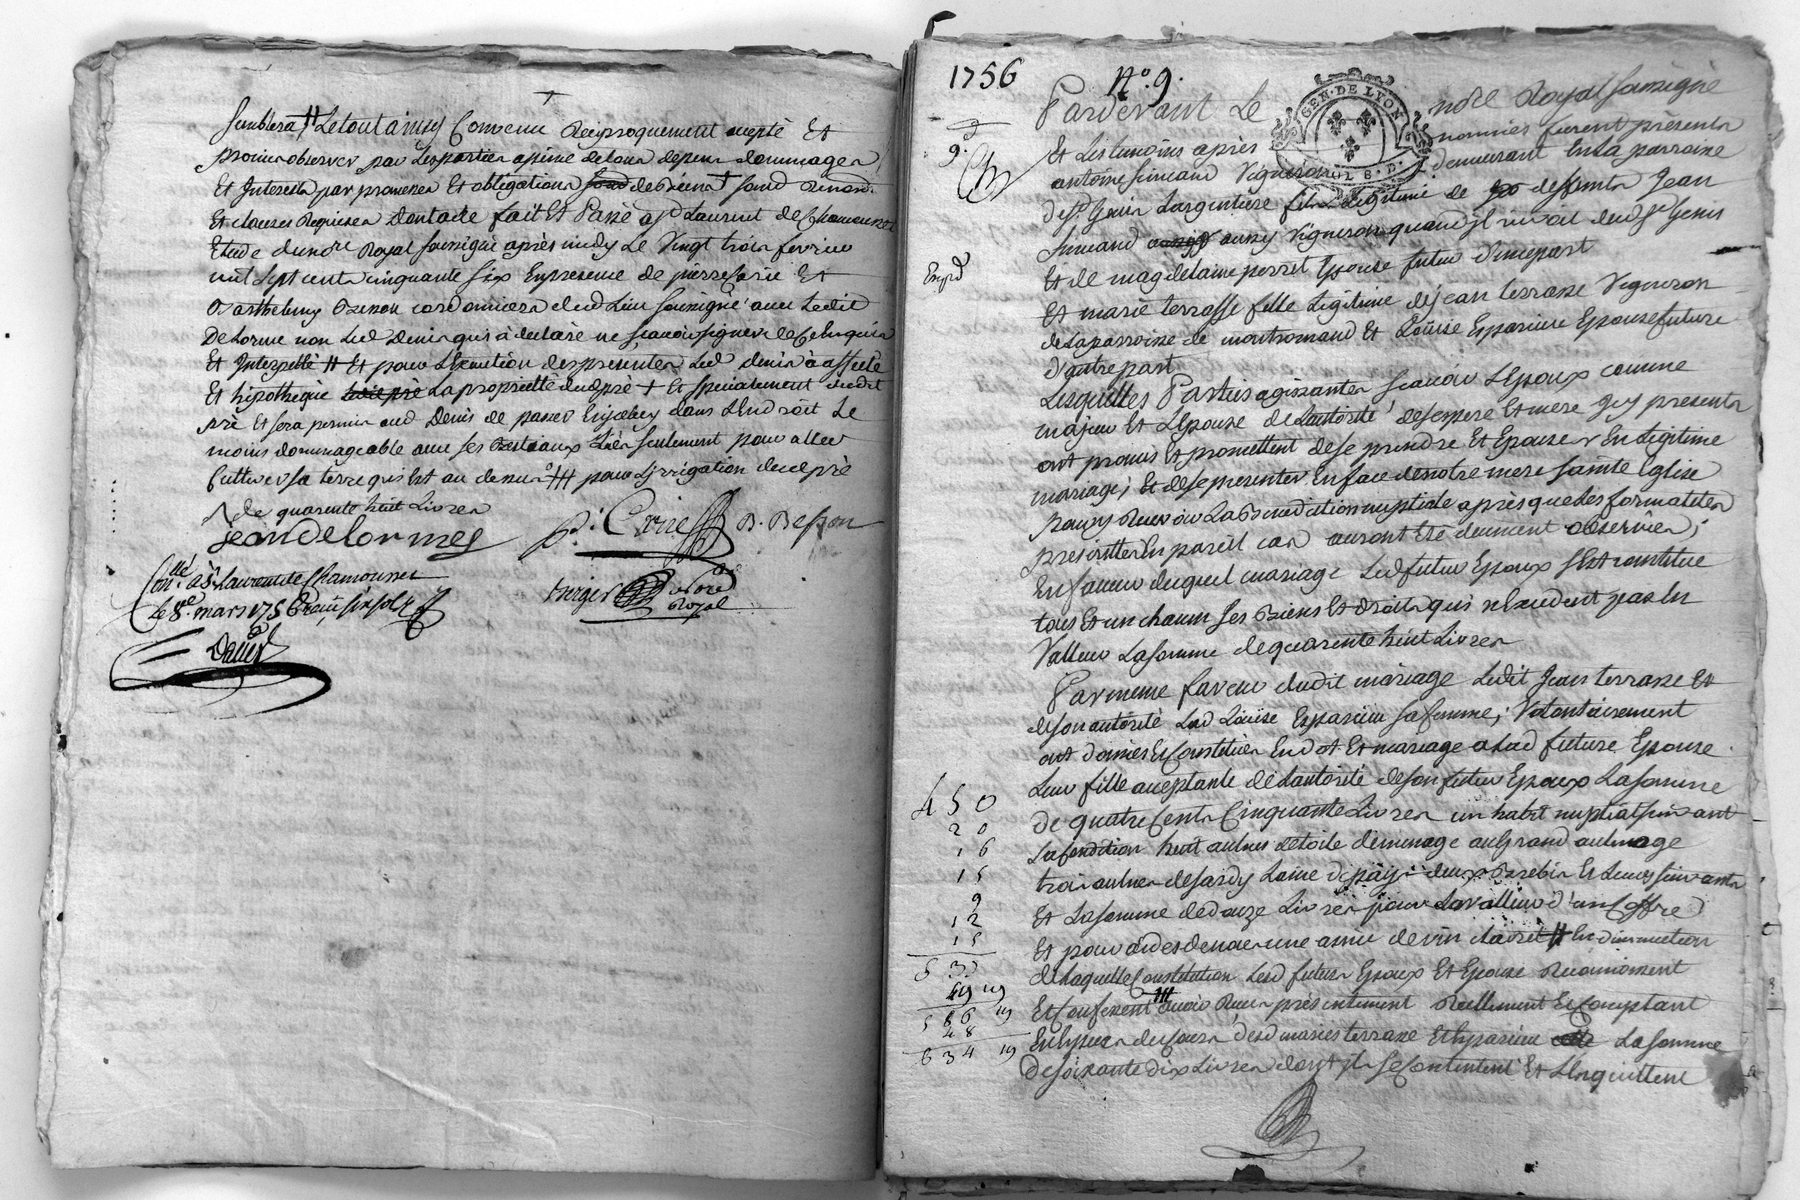 semblera # Le tout ainsy Convenu Reciproquement accepté Et
promis observer par Les parties a peine de tous depens dommages
Et Interets par promesses Et obligations de biens † soumd Renond.
Et clauses Requises dont acte fait Et Passé a St Laurent de Chamousset
Etude du not.re Royal soussigné après midy Le Vingt trois fevrier
mil sept cent cinquante six En presence de pierre Et
Barthelemy cordonniers dud Lieu soussignés avec Ledit
Delorme non Led Denis qui a declaré ne scavoir signer de ce Enquis
Et Interpellé # Et pour L'Execution des presentes Led denis a affecté
Et hipotheque La proprietté dud pré + Et specialement dudit
pré Et sera permis aud Denis de passer dans L'Endroit Le
moins dommageable avec ses Bestiaux seulement pour aller
Cultiver sa terre qui Est au dessus # pour L'irrigation dud pré
de quarente huit Livres
jean delormes P. Crie B. Besson
Con.llé a St Laurent de Chamousset
Le 8e. mars 1756 Reçu six sols
not.re Royal
1756 No. 9.
GEN. DE LYON
Pardevant Le not.re Royal soussigné
Et Les temoins après nommés furent présents
antoine simeand Vigneron demeurant En la parroisse
de St Genis Largentiere fils Legitime de defunts Jean
simeand aussy Vigneron quand il vivoit dud St Genis
Et de magdelaine perret Epoux futur d'une part
Et marie terrasse fille Legitime de jean terrasse Vigneron
de La parroisse de montromand Et Loüise Epouse future
d'autre part
Lesquelles Parties agissantes scavoir L'Epoux comme
majeur Et L'Epouse de L'autorité de ses pere Et mere Icy presents
ont promis Et promettent de se prendre Et Epouser En Legitime
mariage; Et de se presenter En face de notre mere sainte Eglise
pour y Recevoir La Benediction nuptiale après que Les formalités
prescrittes En pareil cas auront Eté deument observées;
En faveur duquel mariage Led futur Epoux s'Est constitué
tous Et un chacun ses Biens Et droits qui n'Excedent pas En
Valleur La somme de quarente huit Livres
Par meme faveur dudit mariage Ledit Jean terrasse Et
de son autorité Lad Loüise sa femme; Volontairement
ont donnés Et Constitués En dot Et mariage a Lad future Epouse
Leur fille acceptante de L'autorité de son futur Epoux La somme
450 de quatre Cents Cinquante Livres un habit nuptial suivant
20 La Condition huit aulnes de toile de menage au Grand aulnage
16 trois aulnes de sardy Laine de païs deux Brebis Et Leurs suivants
15 Et La somme de douze Livres pour La valleur d'un Coffre
9
12 Et pour une anée de vin # En diminution
15 de Laquelle Constitution Lesd futurs Epoux Et Epouse Reconnoissent
Et Confessent avoir Recu présentement Reellement Et Comptant
586 19
48
634 19 En Especes de Cours desd mariés terrasse Et La somme
de soixante dix Livres dont ils se Contentent Et L'En quittent